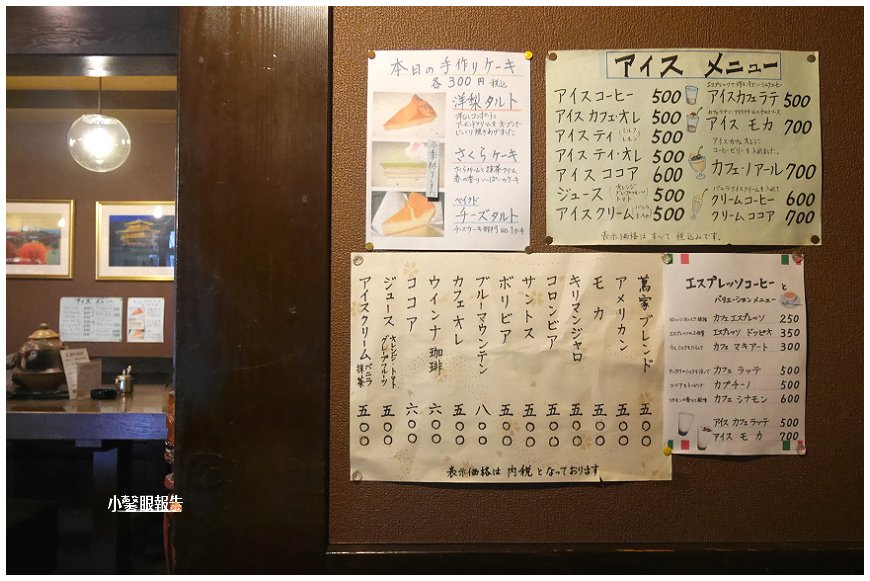 本日の手作りケーキ
各300円 税込
洋梨タルト
さくらケーキ
さくらクリームと抹茶クリーム
春の香りいっぱいのケーキ
ベイクド
チーズタルト
アイス メニュー
アイスコーヒー 500
アイスカフェ・オレ 500
アイスティ (ミルク レモン) 500
アイスティ・オレ 500
アイスココア 600
ジュース (オレンジ グレープフルーツ トマト) 500
アイスクリーム 500
アイスカフェラテ 500
アイス モカ 700
アイスカフェオレに
コーヒーゼリーを入れました
カフェ・ノアール 700
バニラアイスクリームを入れて
クリームコーヒー 600
クリームココア 700
表示価格はすべて税込みです。
萬家ブレンド 五〇〇
アメリカン 五〇〇
モカ 五〇〇
キリマンジャロ 五〇〇
コロンビア 五〇〇
サントス 五〇〇
ボリビア 五〇〇
ブルーマウンテン 八〇〇
カフェオレ 五〇〇
ウィンナ珈琲 六〇〇
ココア 六〇〇
ジュース オレンジ トマト グレープフルーツ 五〇〇
アイスクリーム バニラ 抹茶 五〇〇
表示価格は 内税 となっております
エスプレッソコーヒー と
バリエーションメニュー
カフェエスプレッソ 250
エスプレッソ ドッピオ 350
カフェ マキアート 300
カフェ ラッテ 500
カプチーノ 500
カフェ シナモン 600
アイスカフェラッテ 500
アイス モカ 700
アイス メニュー
小馨眼報告